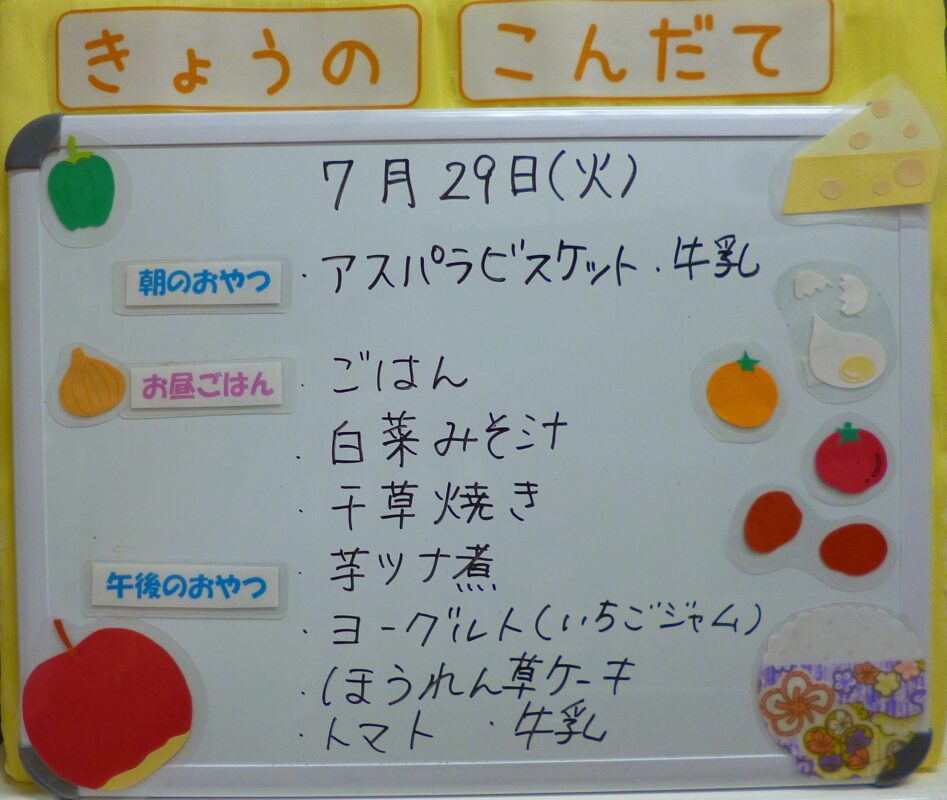 きょうの こんだて
7月29日(火)
朝のおやつ ・アスパラビスケット・牛乳
お昼ごはん ・ごはん
・白菜みそ汁
・千草焼き
午後のおやつ ・芋ツナ煮
・ヨーグルト(いちごジャム)
・ほうれん草ケーキ
・トマト ・牛乳